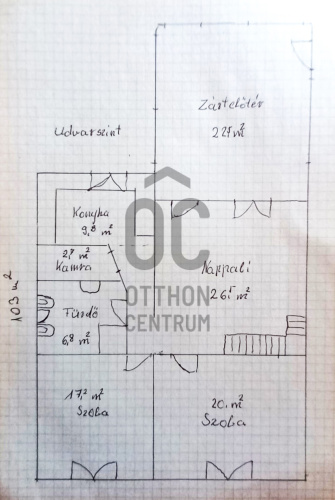 Zártelőtér
22,7 m²
Udvarszint
ÓC
Konyha
9,8 m²
2,7 m²
Kamra
Nappali
26,5 m²
OTTHON
CENTRUM
103 m²
Fürdő
6,8 m²
17,2 m²
Szoba
20. m²
Szoba